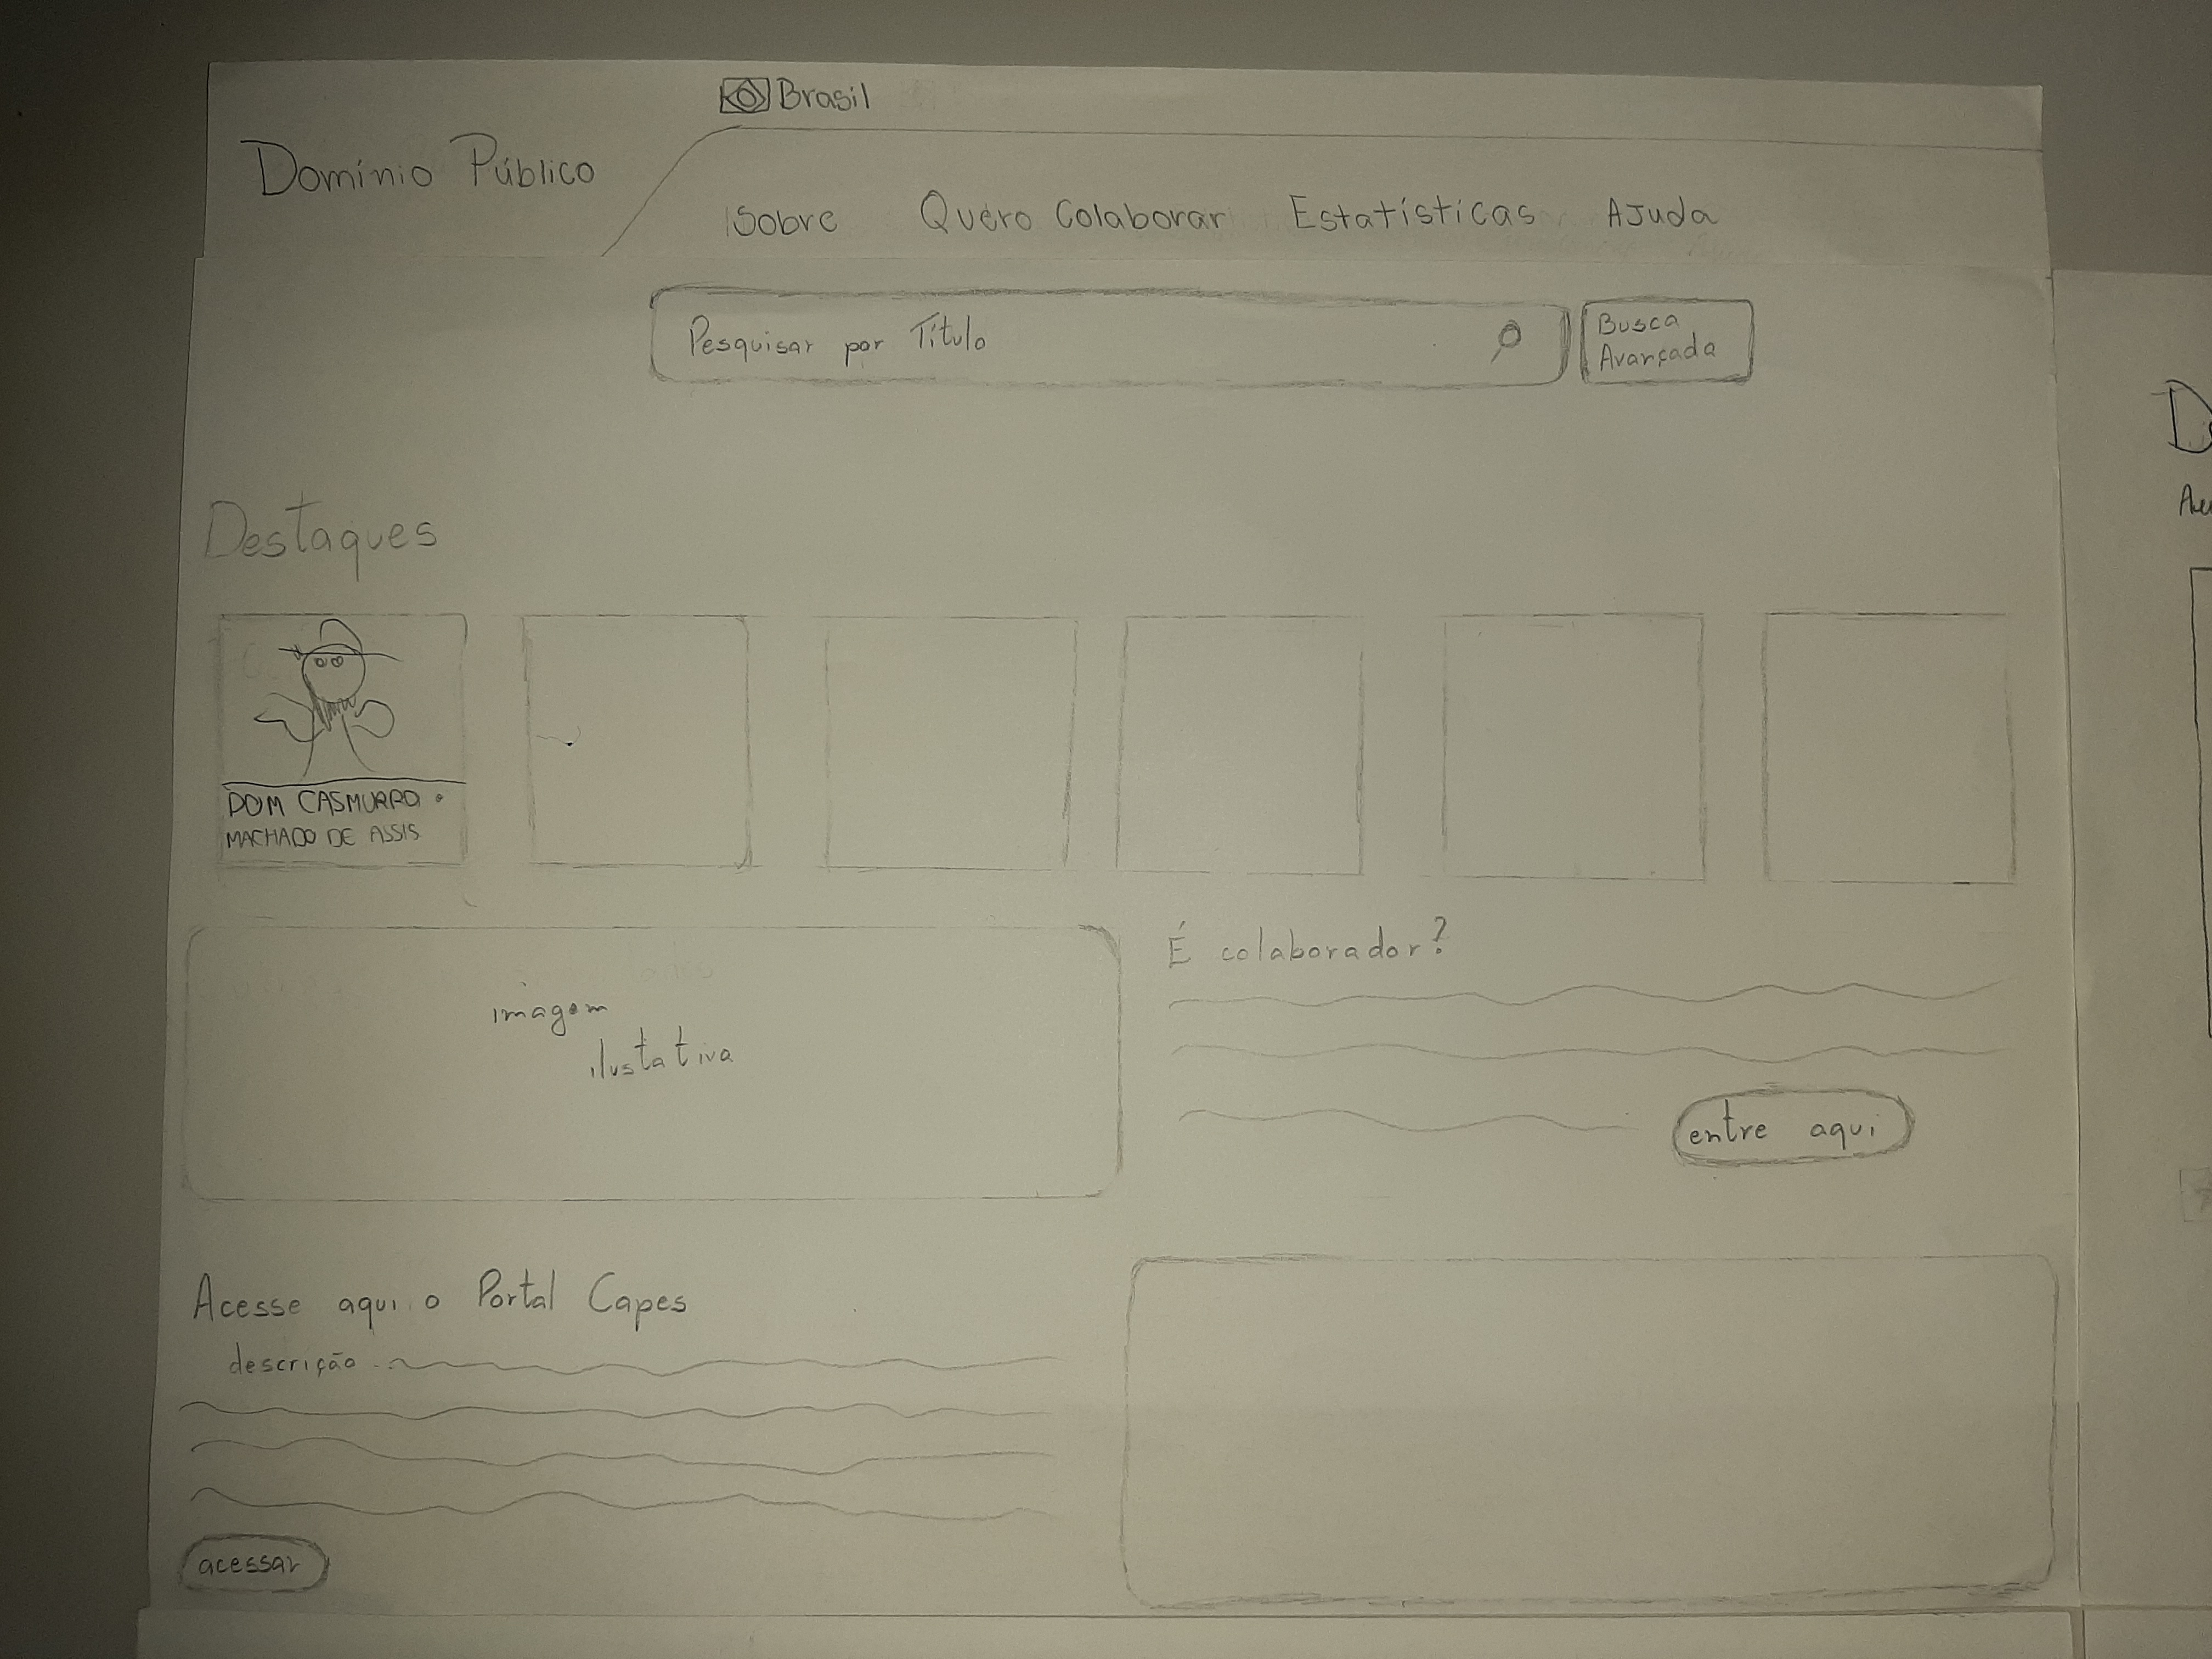 Brasil
Domínio Público
Sobre Quero Colaborar Estatísticas Ajuda
Pesquisar por Título
Busca
Avançada
Destaques
DOM CASMURRO
MACHADO DE ASSIS
imagem
ilustativa
É colaborador?
entre aqui
Acesse aqui o Portal Capes
descrição
acessar